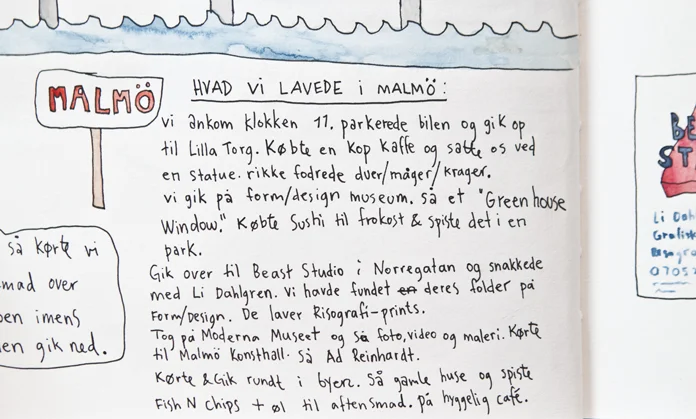 MALMÖ
HVAD vi LAVEDE i MALMÖ:
vi ankom klokken 11. parkerede bilen og gik op
til Lilla Torg. Købte en kop kaffe og satte os ved
en statue. rikke fodrede duer/måger/krager.
vi gik på form/design museum. Så et "Green house
Window." Købte Sushi til frokost & spiste det i en
park.
Gik over til Beast Studio i Norregatan og snakkede
med Li Dahlgren. Vi havde fundet en deres folder på
Form/Design. De laver Risografi-prints.
Tog på Moderna Museet og så foto, video og maleri. Kørte
til Malmö Konsthall. Så Ad Reinhardt.
Kørte & Gik rundt i byen. Så gamle huse og spiste
Fish N Chips + øl til aftensmad. på hyggelig café.
så kørte vi
mad over
imens
gik ned.
BE
ST
Li Dah
Grafisk